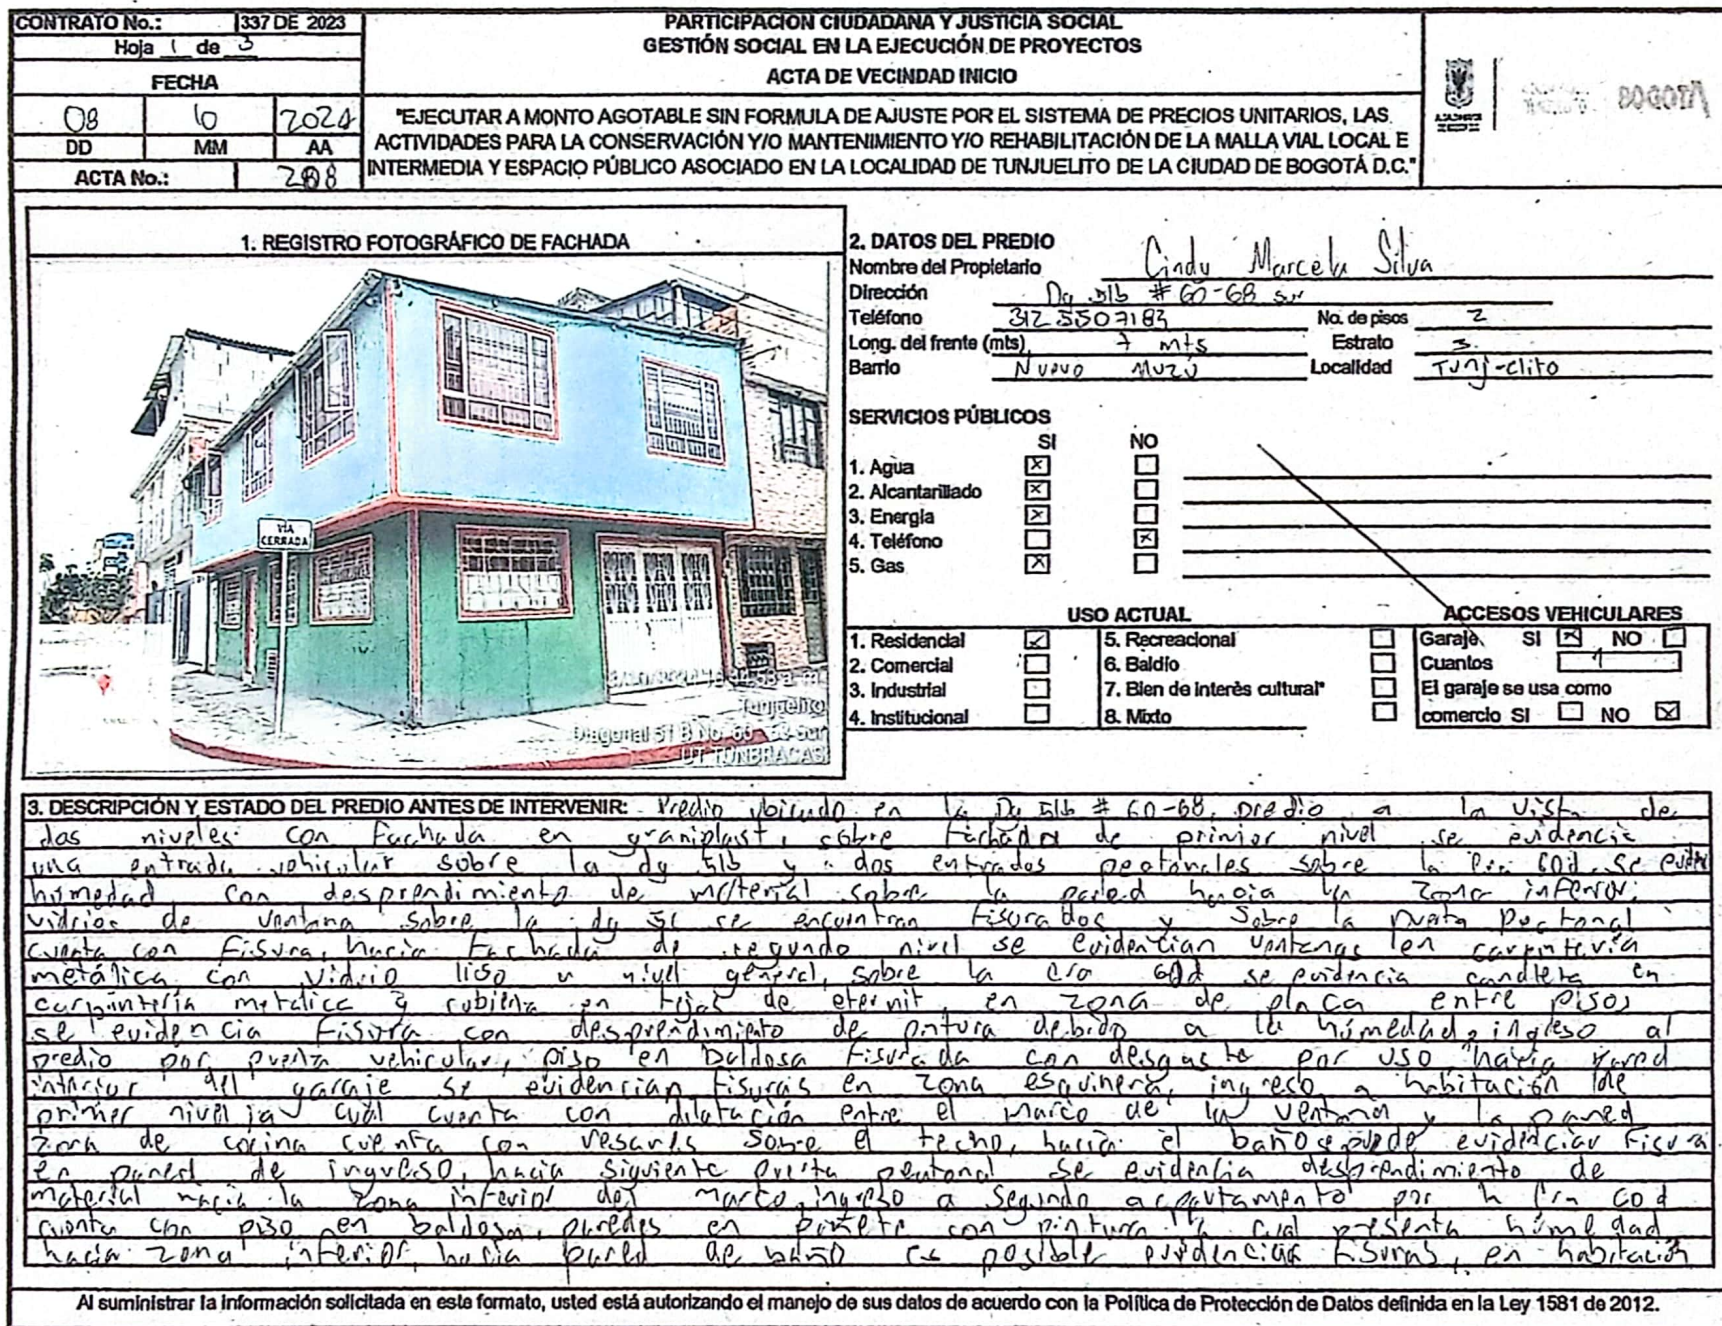 CONTRATO No.: 337 DE 2023
Hoja 1 de 3
FECHA
08 10 2024
DD MM AA
ACTA No.: 208
PARTICIPACIÓN CIUDADANA Y JUSTICIA SOCIAL
GESTIÓN SOCIAL EN LA EJECUCIÓN DE PROYECTOS
ACTA DE VECINDAD INICIO
"EJECUTAR A MONTO AGOTABLE SIN FORMULA DE AJUSTE POR EL SISTEMA DE PRECIOS UNITARIOS, LAS
ACTIVIDADES PARA LA CONSERVACIÓN Y/O MANTENIMIENTO Y/O REHABILITACIÓN DE LA MALLA VIAL LOCAL E
INTERMEDIA Y ESPACIO PÚBLICO ASOCIADO EN LA LOCALIDAD DE TUNJUELITO DE LA CIUDAD DE BOGOTÁ D.C."
1. REGISTRO FOTOGRÁFICO DE FACHADA
VIA
CERRADA
Tunjuelito
Diagonal 51 B No. 60 - 68 Sur
UT TUNBRACAS
2. DATOS DEL PREDIO
Nombre del Propietario Cindy Marcela Silva
Dirección Dg 51b # 60-68 sur
Teléfono 312 5507183 No. de pisos 2
Long. del frente (mts) 7 mts Estrato 3
Barrio Nuevo Muzú Localidad Tunjuelito
SERVICIOS PÚBLICOS
SI NO
1. Agua X
2. Alcantarillado X
3. Energía X
4. Teléfono X
5. Gas X
USO ACTUAL ACCESOS VEHICULARES
1. Residencial 5. Recreacional Garaje SI X NO
2. Comercial 6. Baldío Cuantos 1
3. Industrial 7. Bien de interés cultural* El garaje se usa como
4. Institucional 8. Mixto comercio SI NO X
3. DESCRIPCIÓN Y ESTADO DEL PREDIO ANTES DE INTERVENIR: Predio ubicado en la Dg 51b # 60-68, predio a la vista de
dos niveles con Fachada en graniplast, sobre fachada de primer nivel se evidencia
una entrada vehicular sobre la dg 51b y dos entradas peatonales sobre la cra 60d, se
humedad con desprendimiento de material sobre la pared hacia la zona inferior,
vidrios de ventana sobre la dg 51 se encuntran Fisurados y sobre la puerta peatonal
cuenta con Fisura, hacia Fachada de segundo nivel se evidencian ventanas en carpintería
metálica con vidrio liso a nivel general, sobre la cra 60d se evidencia en
carpintería metalica y cubierta en teja de eternit, en zona de placa entre pisos
se evidencia Fisura con desprendimiento de pintura debido a la húmedad, ingreso al
predio por puerta vehicular, piso en baldosa Fisurada con desgaste por uso hacia pared
interior del garaje se evidencian Fisuras en zona esquinera, ingreso a habitación de
primer nivel la cual cuenta con dilatación entre el marco de la ventana y la pared
zona de cocina cuenta con sobre el techo, hacia el baño se puede evidenciar Fisura
en pared de ingreso, hacia siguiente puerta peatonal se evidencia desprendimiento de
material hacia la zona inferior del marco, ingreso a segundo apartamento por la cra 60d
cuenta con piso en baldosa, paredes en pañete con pintura la cual presenta húmedad
hacia zona inferior, hacia pared de baño es posible evidenciar Fisuras, en habitación
Al suministrar la información solicitada en este formato, usted está autorizando el manejo de sus datos de acuerdo con la Política de Protección de Datos definida en la Ley 1581 de 2012.